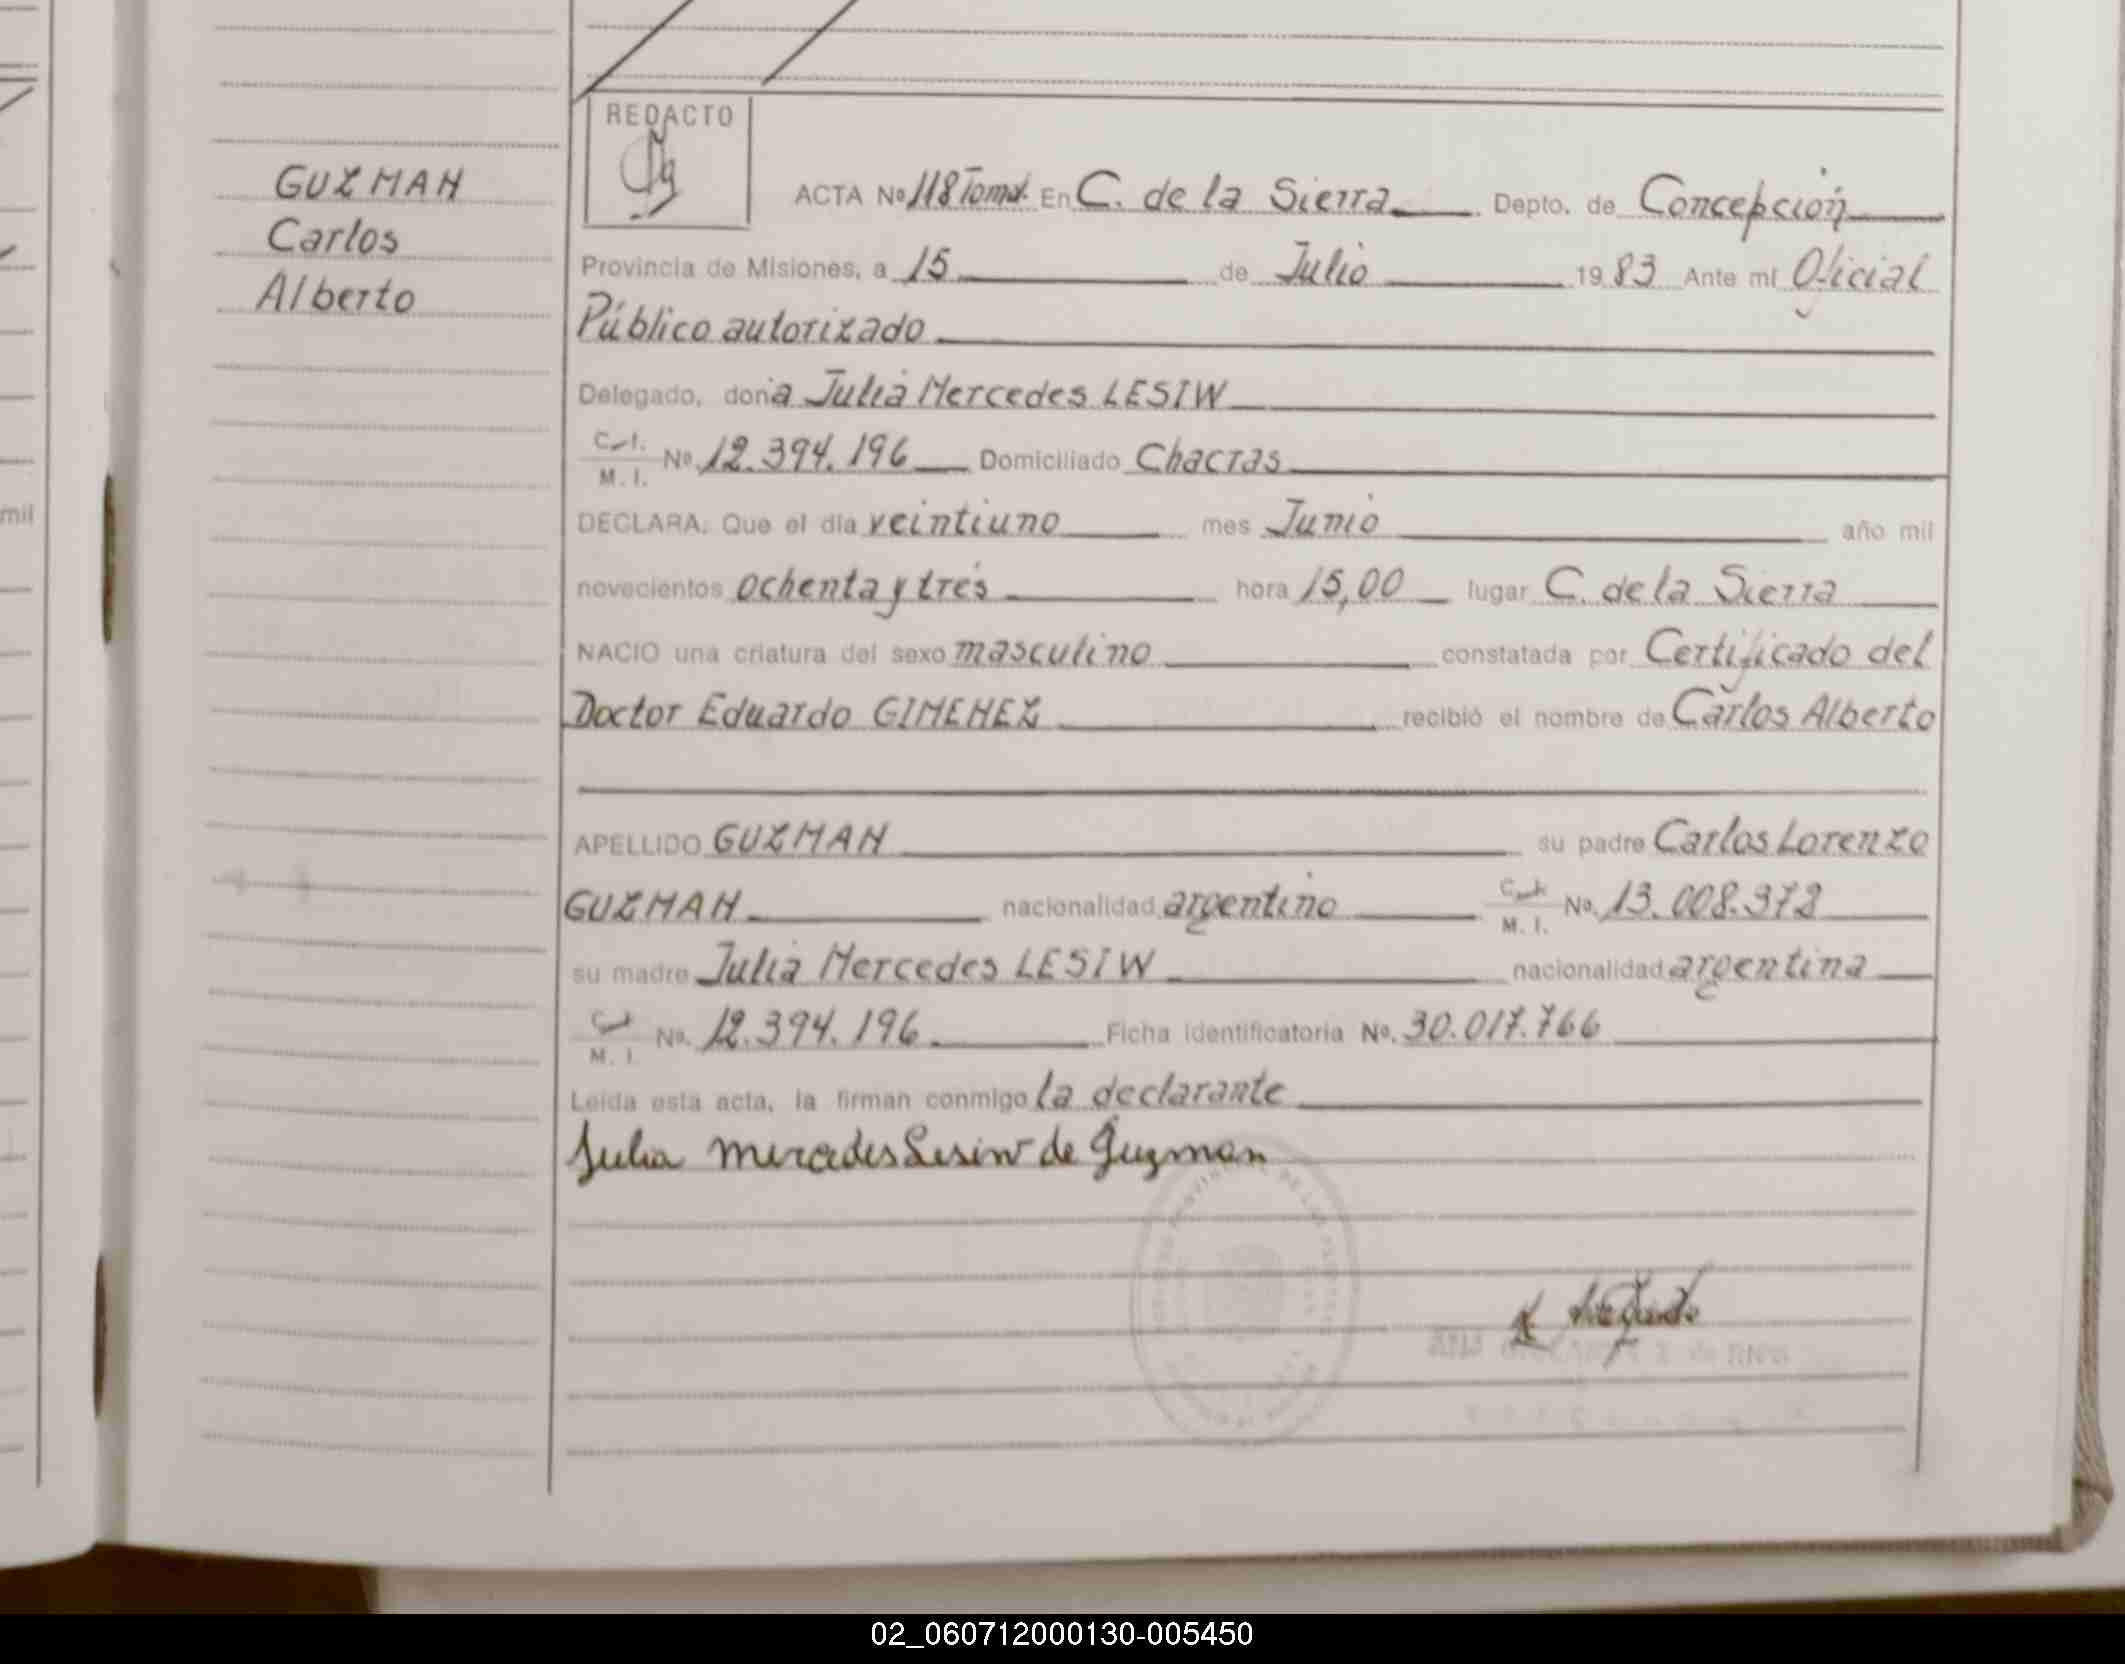 mil
GUZMAN
Carlos
Alberto
REDACTO
ACTA Nº 118 Tomo I. En C. de la Sierra Depto. de Concepción
Provincia de Misiones, a 15 de Julio 1983 Ante mí Oficial
Público autorizado
Delegado, doña Julia Mercedes LESIW
C. I.
M. I. Nº 12.394.196 Domiciliado Chacras
DECLARA: Que el día veintiuno mes Junio año mil
novecientos ochenta y tres hora 15,00 lugar C. de la Sierra
NACIO una criatura del sexo masculino constatada por Certificado del
Doctor Eduardo GIMENEZ recibió el nombre de Carlos Alberto
APELLIDO GUZMAN su padre Carlos Lorenzo
GUZMAN nacionalidad argentino C. I. M. I. Nº 13.008.372
su madre Julia Mercedes LESIW nacionalidad argentina
M. I. Nº 12.394.196 Ficha identificatoria Nº 30.017.766
Leída esta acta, la firman conmigo la declarante
Julia Mercedes Lesiw de Guzman
02_060712000130-005450